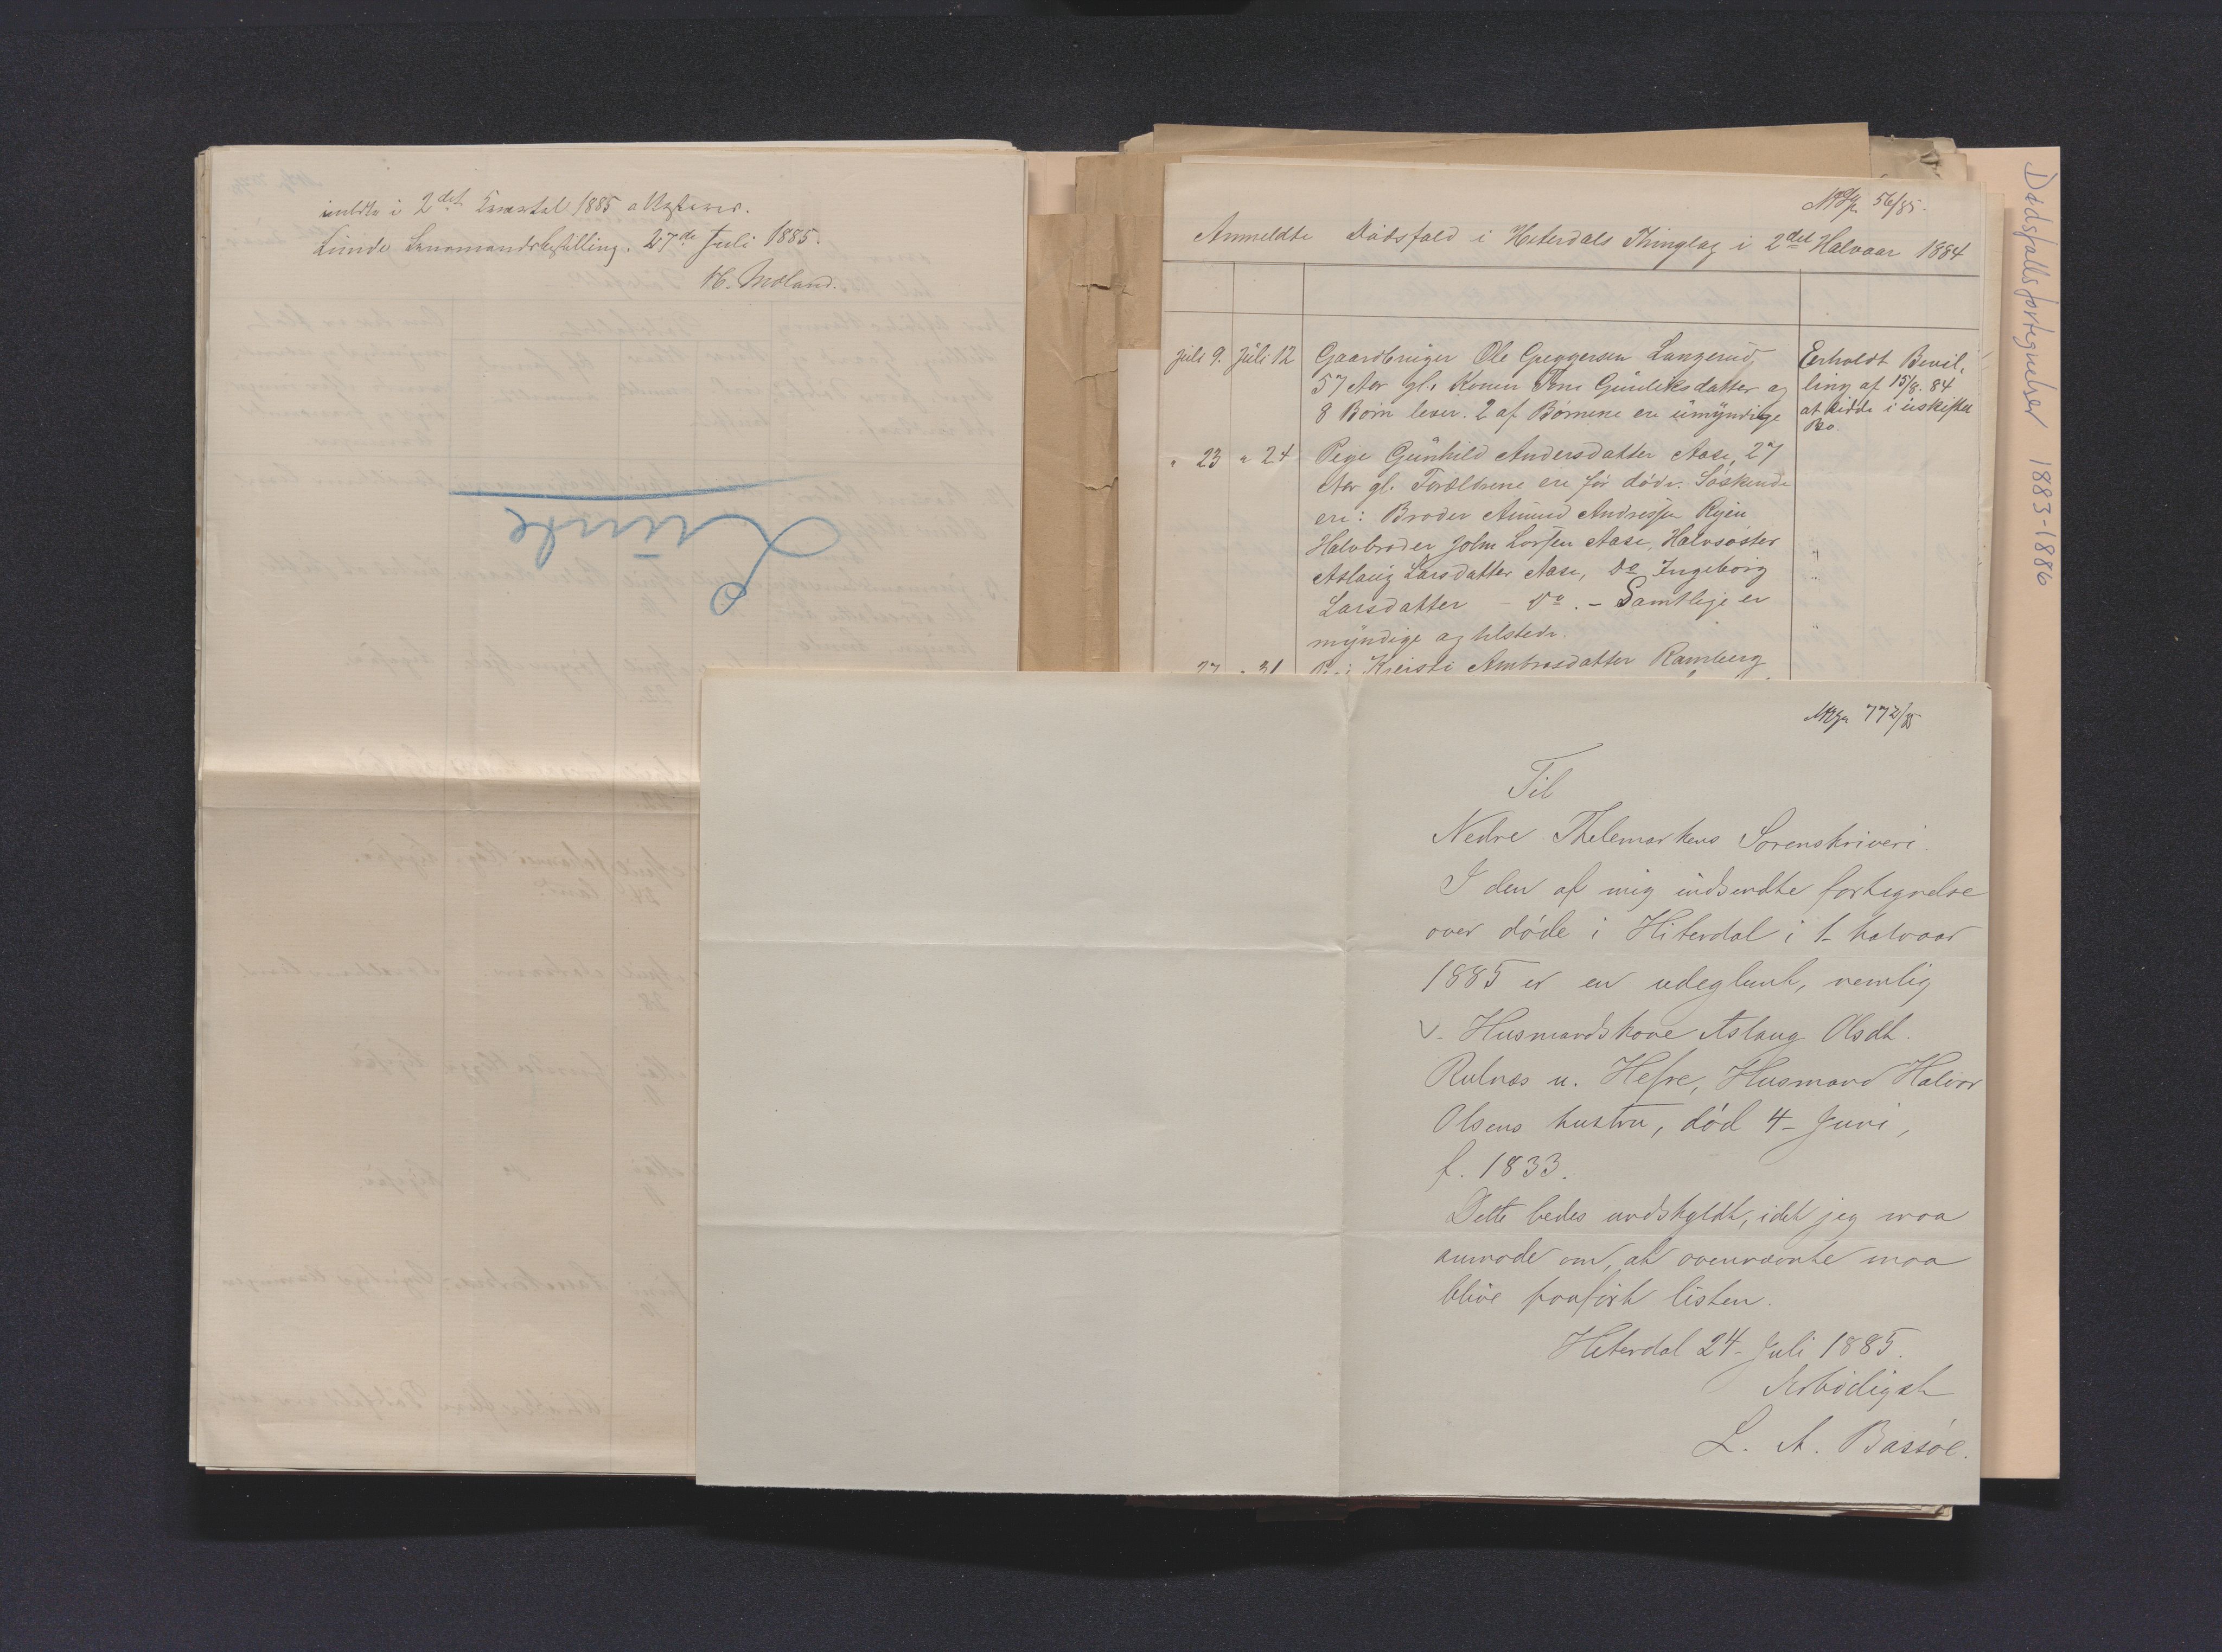 i 2det 1885 attesteres.
Lunde Lensmandsbestilling. 27de Juli 1885.
H. Moland.
Lunde
56/85.
Anmeldte Dødsfald i Hiterdals Thinglag i 2det Halvaar 1884
Juli 9. Juli 12 Gaardbruger Ole Greggersen Langerud, Erholdt Bevil-
57 Aar gl. Konen Tone Gunleiksdatter og ling af 15/8. 84
8 Børn lever. 2 af Børnene ere umyndige at sidde i uskiftet
Bo.
" 23 " 24 Pige Gunhild Andersdatter Aase, 27
Aar gl. Forældrene ere før døde. Søskende
ere: Broder Amund Andressen Ryen
Halvbroder John Larsen Aase, Halvsøster
Aslaug Larsdatter Aase, do Ingeborg
Larsdatter - do. - Samtlige er
myndige og tilstede.
27 " 31 Kristi Ambrosdatter Ramberg
772/85
Til
Nedre Thelemarkens Sorenskriveri.
I den af mig indsendte fortegnelse
over døde i Hiterdal i 1- halvaar
1885 er en udeglemt, nemlig
Husmandskone Aslaug Olsdt.
Rulnæs u. Hefre, Husmand Halvor
Olsens hustru, død 4- Juni,
f. 1833.
Dette bedes undskyldt, idet jeg maa
anmode om, at ovennævnte maa
blive paaført listen.
Hiterdal 24- Juli 1885.
Ærbødigst
L. A. Bassøe.
Dødsfallsfortegnelser 1883-1886